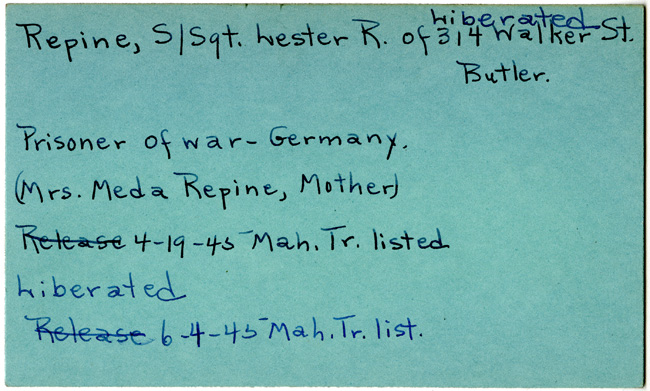 Liberated
Repine, S/Sgt. Lester R. of 314 Walker St.
Butler.
Prisoner of war - Germany.
(Mrs. Meda Repine, Mother)
Release 4-19-45 Mah. Tr. listed
Liberated
Release 6-4-45 Mah. Tr. list.